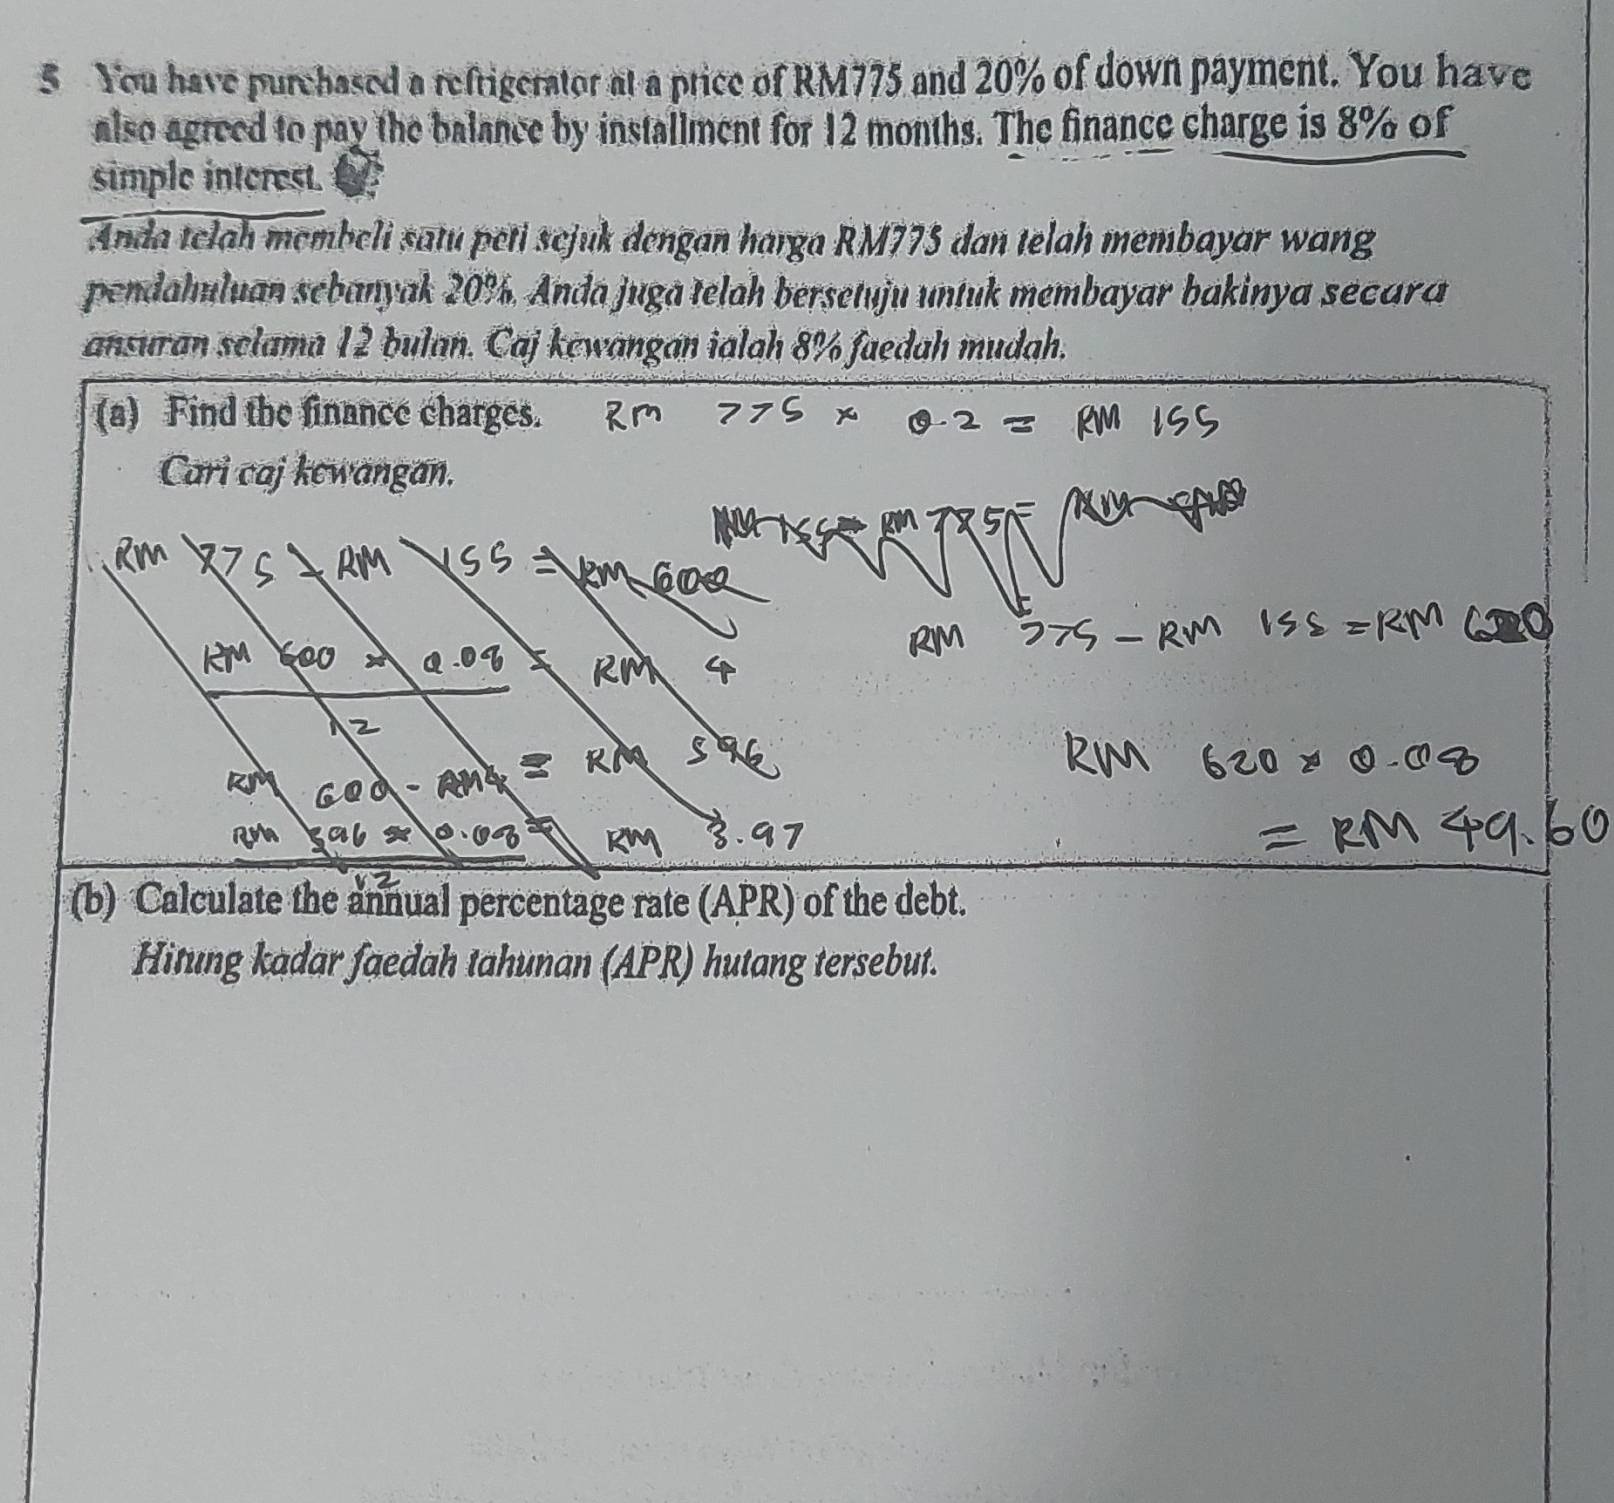 5 You have purchased a refrigerator at a price of RM775 and 20% of down payment. You have
also agreed to pay the balance by installment for 12 months. The finance charge is 8% of
simple interest.
Anda telah membeli satu peti sejuk dengan harga RM775 dan telah membayar wang
pendahuluan sebanyak 20%. Anda juga telah bersetuju untuk membayar bakinya secara
ansuran selama 12 bulan. Caj kewangan ialah 8% faedah mudah.
(a) Find the finance charges. RM 775 × 0.2 = RM 155
Cari caj kewangan.
RM 155 RM 775 = RM
RM 775 - RM 155 = RM 600
RM 775 - RM 155 = RM 620
RM 600 × 0.08 = RM 4
12
RM 600 - RM4 = RM 596
RM 620 × 0.08
RM 596 × 0.08 = RM 3.97
= RM 49.60
12
(b) Calculate the annual percentage rate (APR) of the debt.
Hitung kadar faedah tahunan (APR) hutang tersebut.